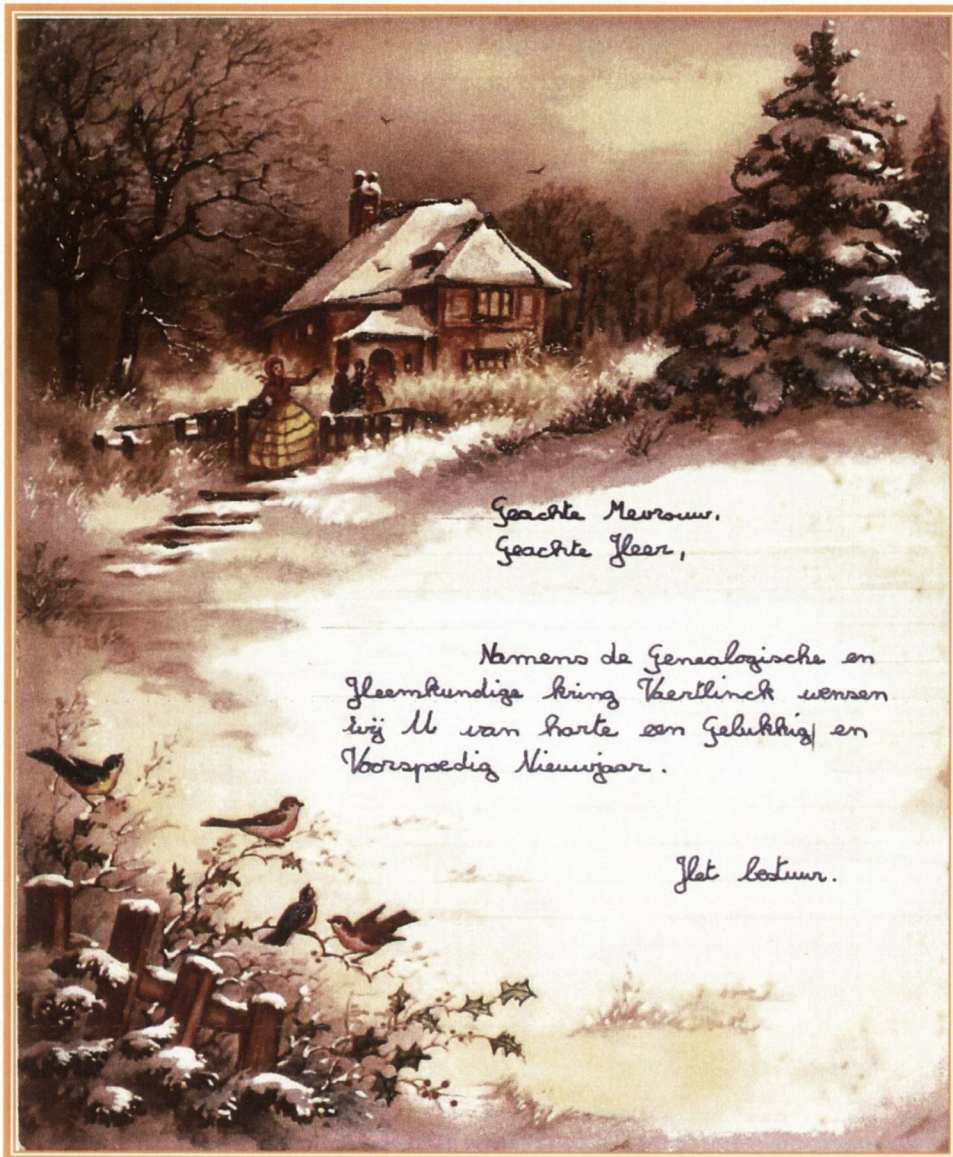 Geachte Mevrouw.
Geachte Heer,
Namens de Genealogische en
Heemkundige kring Vaertlinck wensen
wij U van harte een Gelukkig en
Voorspoedig Nieuwjaar.
Het bestuur.